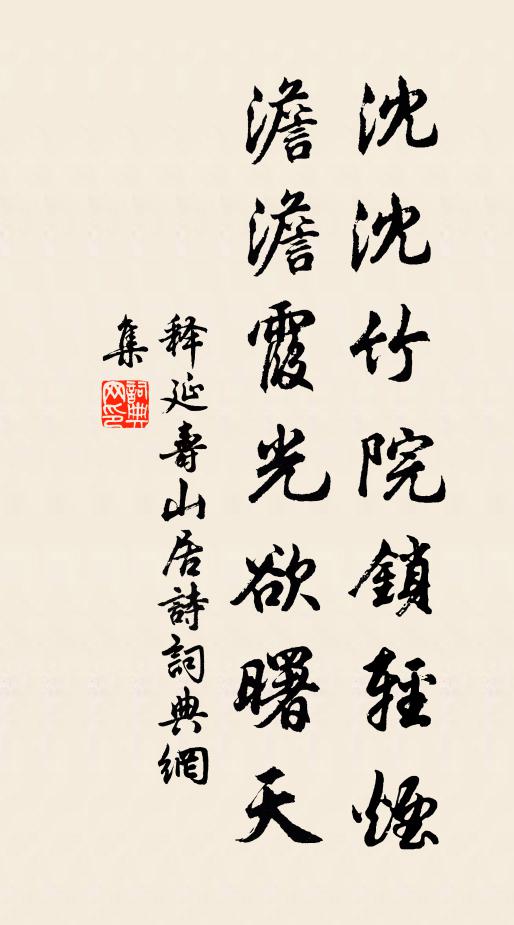 沈沈竹院鎖輕煙
澹澹霞光欲曙天
释延壽山居詩詞典網
集
詞典
网印